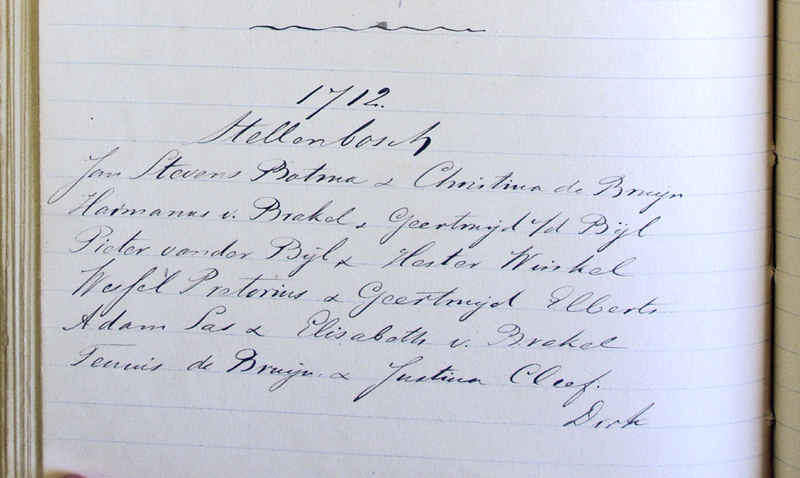 1712.
Stellenbosch
Jan Stevens Botma & Christina de Bruyn
Harmanus v. Brakel & Geertruyd v/d Bÿl
Pieter vander Bÿl & Hester Winkel
Wessel Pretorius & Geertruyd Elberts
Adam Tas & Elisabeth v. Brakel
Teunis de Bruijn & Justina Cleef.
Dirk